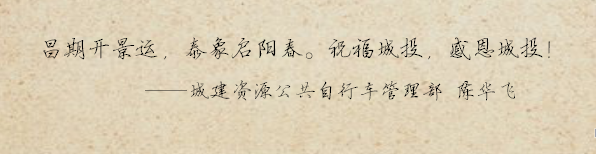 昌期开景运，泰象启阳春。祝福城投，感恩城投！
——城建资源公共自行车管理部 陈华飞